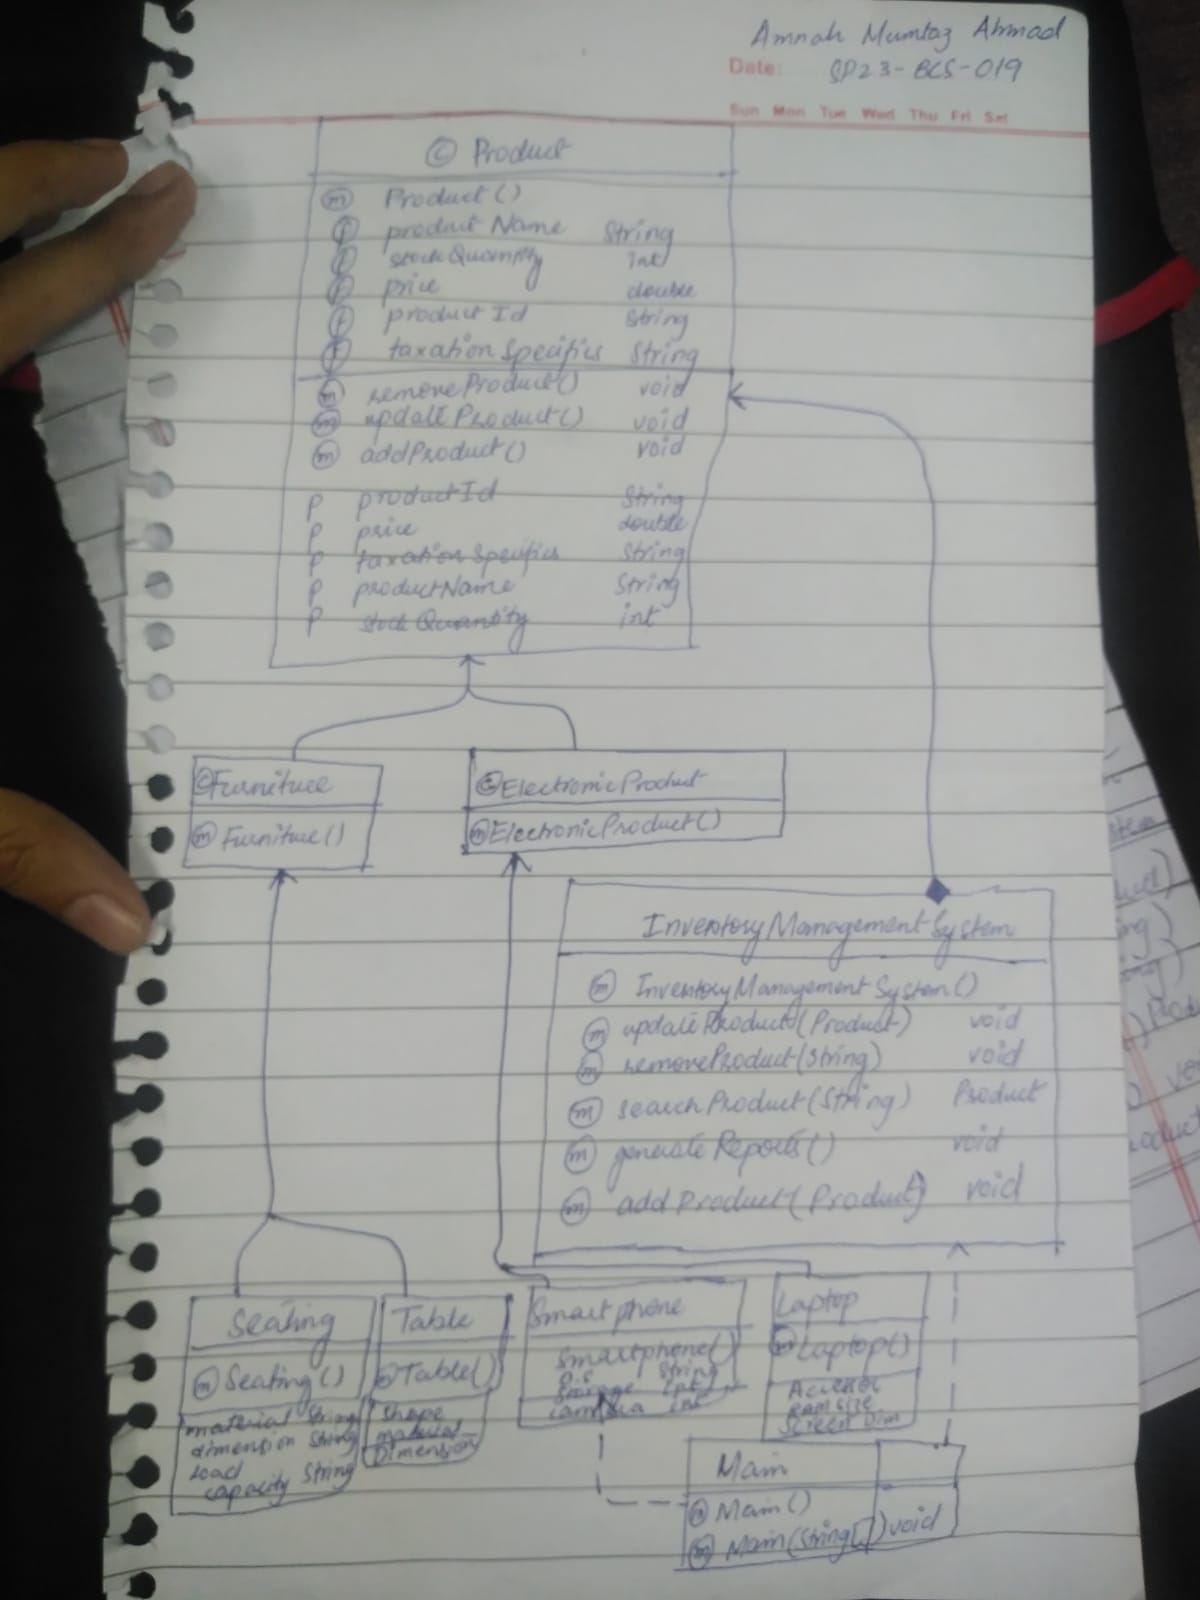 Amnah Mumtaz Ahmad
Date: SP23-BCS-019
Sun Mon Tue Wed Thu Fri Sat
© Product
m Product()
f productName String
f stockQuantity int
f price double
f productId String
f taxationSpecifics String
m removeProduct() void
m updateProduct() void
m addProduct() void
p productId String
p price double
p taxationSpecifics String
p productName String
p stockQuantity int
© Furniture
m Furniture()
© ElectronicProduct
m ElectronicProduct()
InventoryManagementSystem
m InventoryManagementSystem()
m updateProducts(Product) void
m removeProduct(String) void
m searchProduct(String) Product
m generateReports() void
m addProduct(Product) void
Seating
m Seating()
material String
dimension String
Load
capacity String
Table
Table()
shape
material
Dimension
Smartphone
Smartphone()
O.S String
Storage int
camera int
Laptop
m Laptop()
Ramsize
Screen Dim
Main
m Main()
m Main(String[]) void